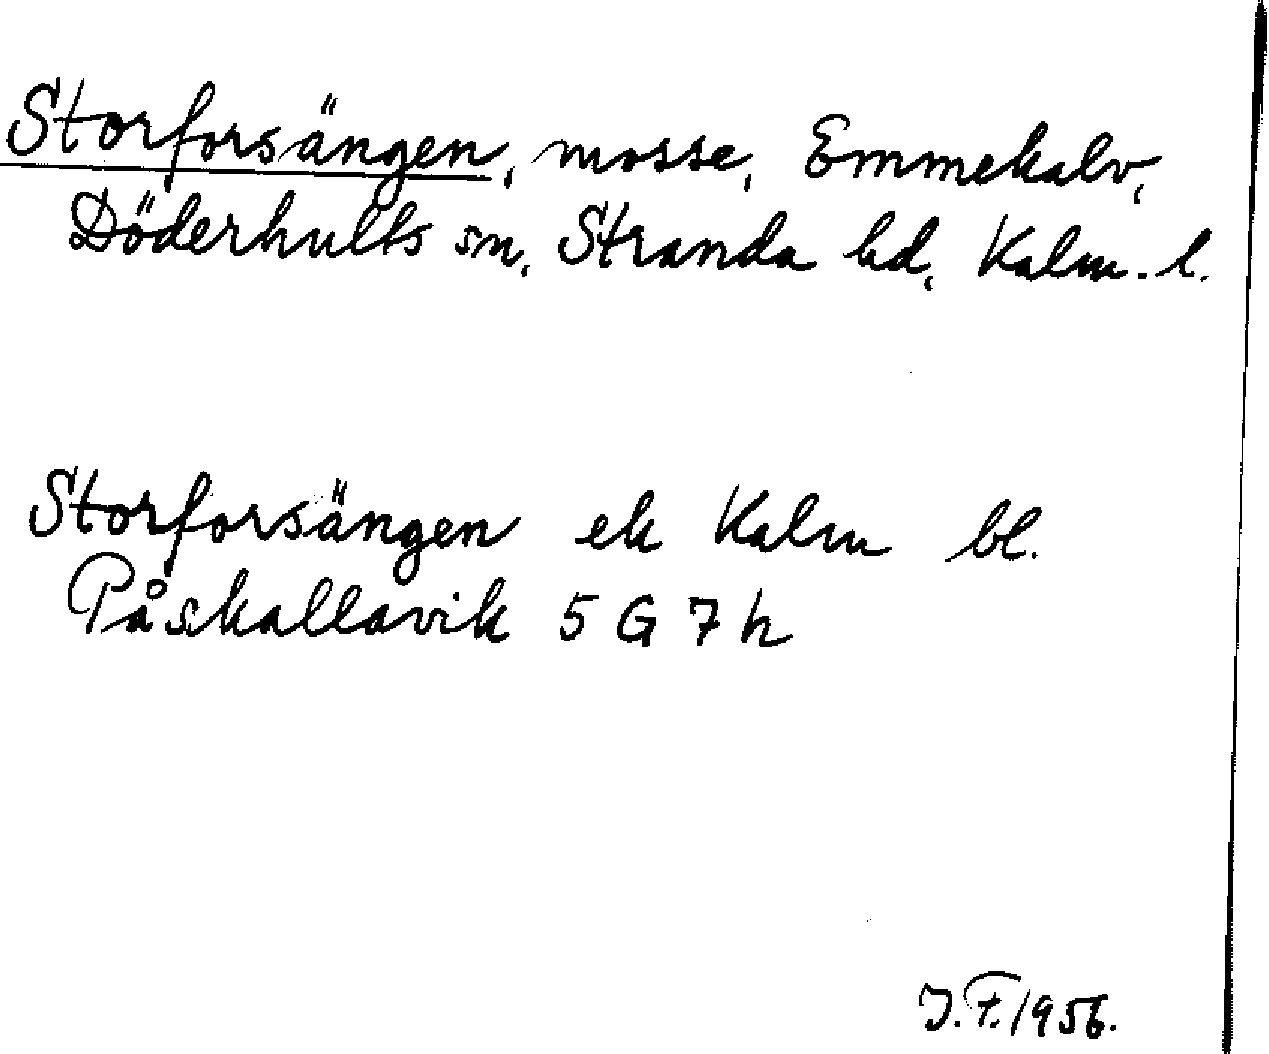 Storforsängen, mosse, Emmekalv,
Döderhults sn, Stranda hd, Kalm. l.
Storforsängen ek Kalm bl.
Påskallavik 5 G 7 h
J.F. 1956.